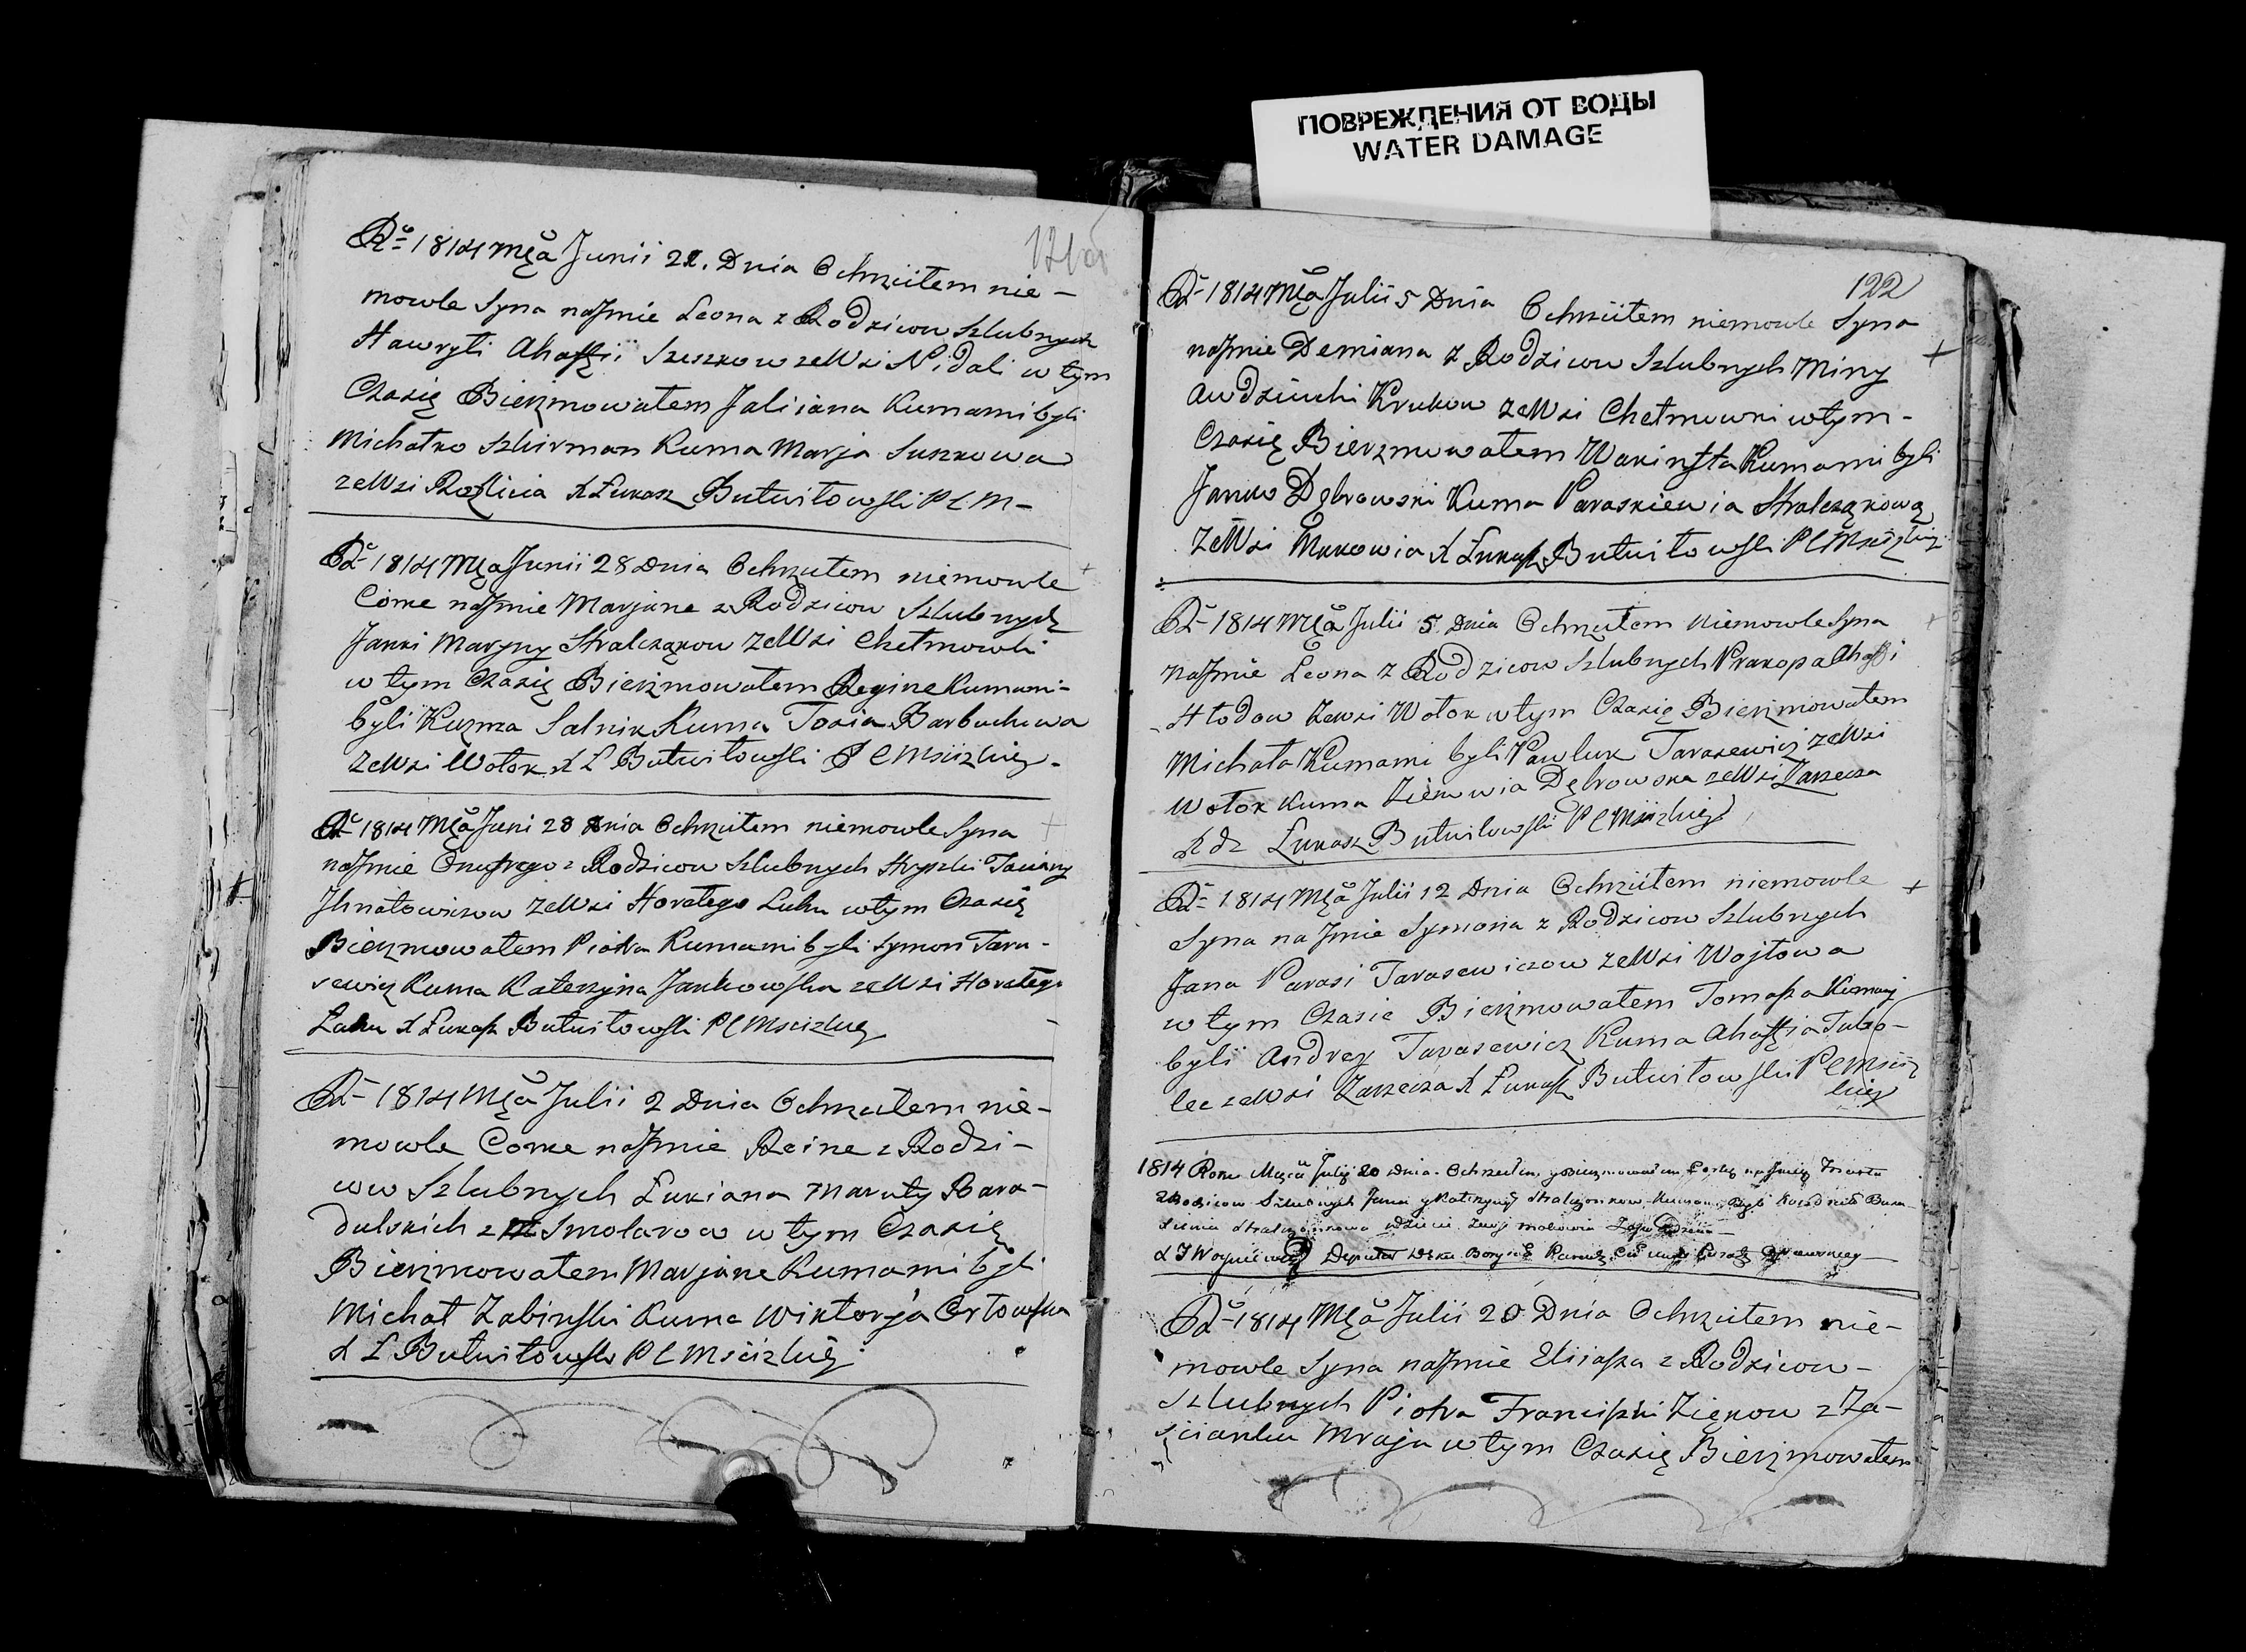 ПОВРЕЖДЕНИЯ ОТ ВОДЫ
WATER DAMAGE
Rº 1814 Mca Junii 22. Dnia Ochrzciłem nie-
mowle Syna na Jmie Leona z Rodzicow Szlubnych
Hawryli Ahafii Szeszkow ze Wsi Nidali w tym
Czasię Bierzmowałem Kumami byli
Michałko Kuma Marja Suszkowa
ze Wsi X Łukasz Butwiłowski P C M-
Rº 1814 Mca Junii 28 Dnia Ochrzciłem niemowle
Corne na Jmie Marjane z Rodzicow Szlubnych
Janki Maryny Stralcząkow ze Wsi Chełmowki
w tym Czasię Bierzmowałem Regine Kumami-
byli Kuzma Salnik Kuma Tosia Barbuchowa
ze Wsi Wołok X Ł Butwiłowski P C Mscizkiey-
Rº 1814 Mca Juni 28 Dnia Ochrzciłem niemowle Syna
na Jmie Onufrego z Rodzicow Szlubnych Hryszki Taciany
Jhnatowiczow ze Wsi Horałego Luhu w tym Czasię
Bierzmowałem Piotra Kumami byli Symon Tara-
sewicz Kuma Katerzyna Jankowska ze Wsi Horałego
Luhu X Łukasz Butwiłowski P C Mscizkiey
Rº 1814 Mca Julii 2 Dnia Ochrzciłem nie-
mowle Corne na Jmie Reine z Rodzi-
cow Szlubnych Łukiana Maruty Bara-
dulskich z Smolarow w tym Czasię
Bierzmowałem Marjane Kumami byli
Michał Zabinski Kuma Wiktorja Orłowska
X Ł Butwiłowski P C Mscizkiey
122
Rº 1814 Mca Julii 5 Dnia Ochrzciłem niemowle Syna
na Jmie Demiana z Rodzicow Szlubnych Miny
Audziuchi Krukow ze Wsi Chełmowki w tym-
Czasię Bierzmowałem Kumami byli
Janko Dębrowski Kuma Paraskiewia Stralcząkowa
ze Wsi Mokowia X Łukasz Butwiłowski P C Mscizkiey
Rº 1814 Mca Julii 5 Dnia Ochrzciłem Niemowle Syna
na Jmie Leona z Rodzicow Szlubnych Prakopa Ahafii
Hłodow ze Wsi Wołok w tym Czasię Bierzmowałem
Michała Kumami byli Pawluk Tarasewicz ze Wsi
Wołok Kuma Zienowia Dębrowska ze Wsi Zarzecza
X Łukasz Butwiłowski P C Mscizkiey
Rº 1814 Mca Julii 12 Dnia Ochrzciłem niemowle
Syna na Jmie Symona z Rodzicow Szlubnych
Jana Parasi Tarasewiczow ze Wsi Wojtowa
w tym Czasie Bierzmowałem Tomasza Kumamy
byli Andrey Tarasewicz Kuma Ahafia Tubo-
lec ze Wsi Zarzecza X Łukasz Butwiłowski P C Mscizkiey
1814 Roku Julij 20 Dnia Ochrzciłem y Bierzmowałem
z Rodzicow Szlubnych Jana y Katerzyny byli
Deputat
Rº 1814 Mca Julii 20 Dnia Ochrzciłem nie-
mowle Syna na Jmie Elijasza z Rodzicow-
Szlubnych Piotra Franciszki Ziękow z Za-
scianku Mraja w tym Czasię Bierzmowałem